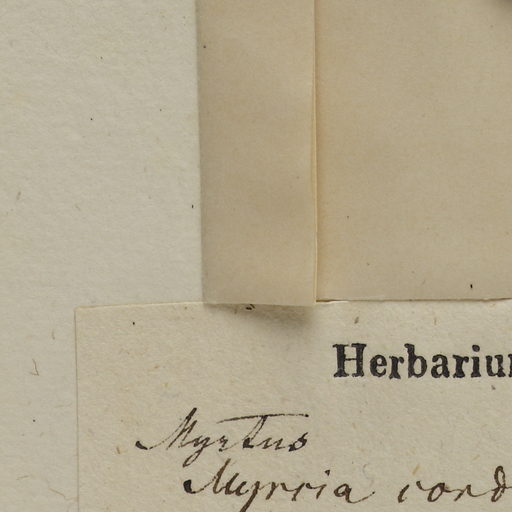 Herbariu
Myrtus
Myrcia cord